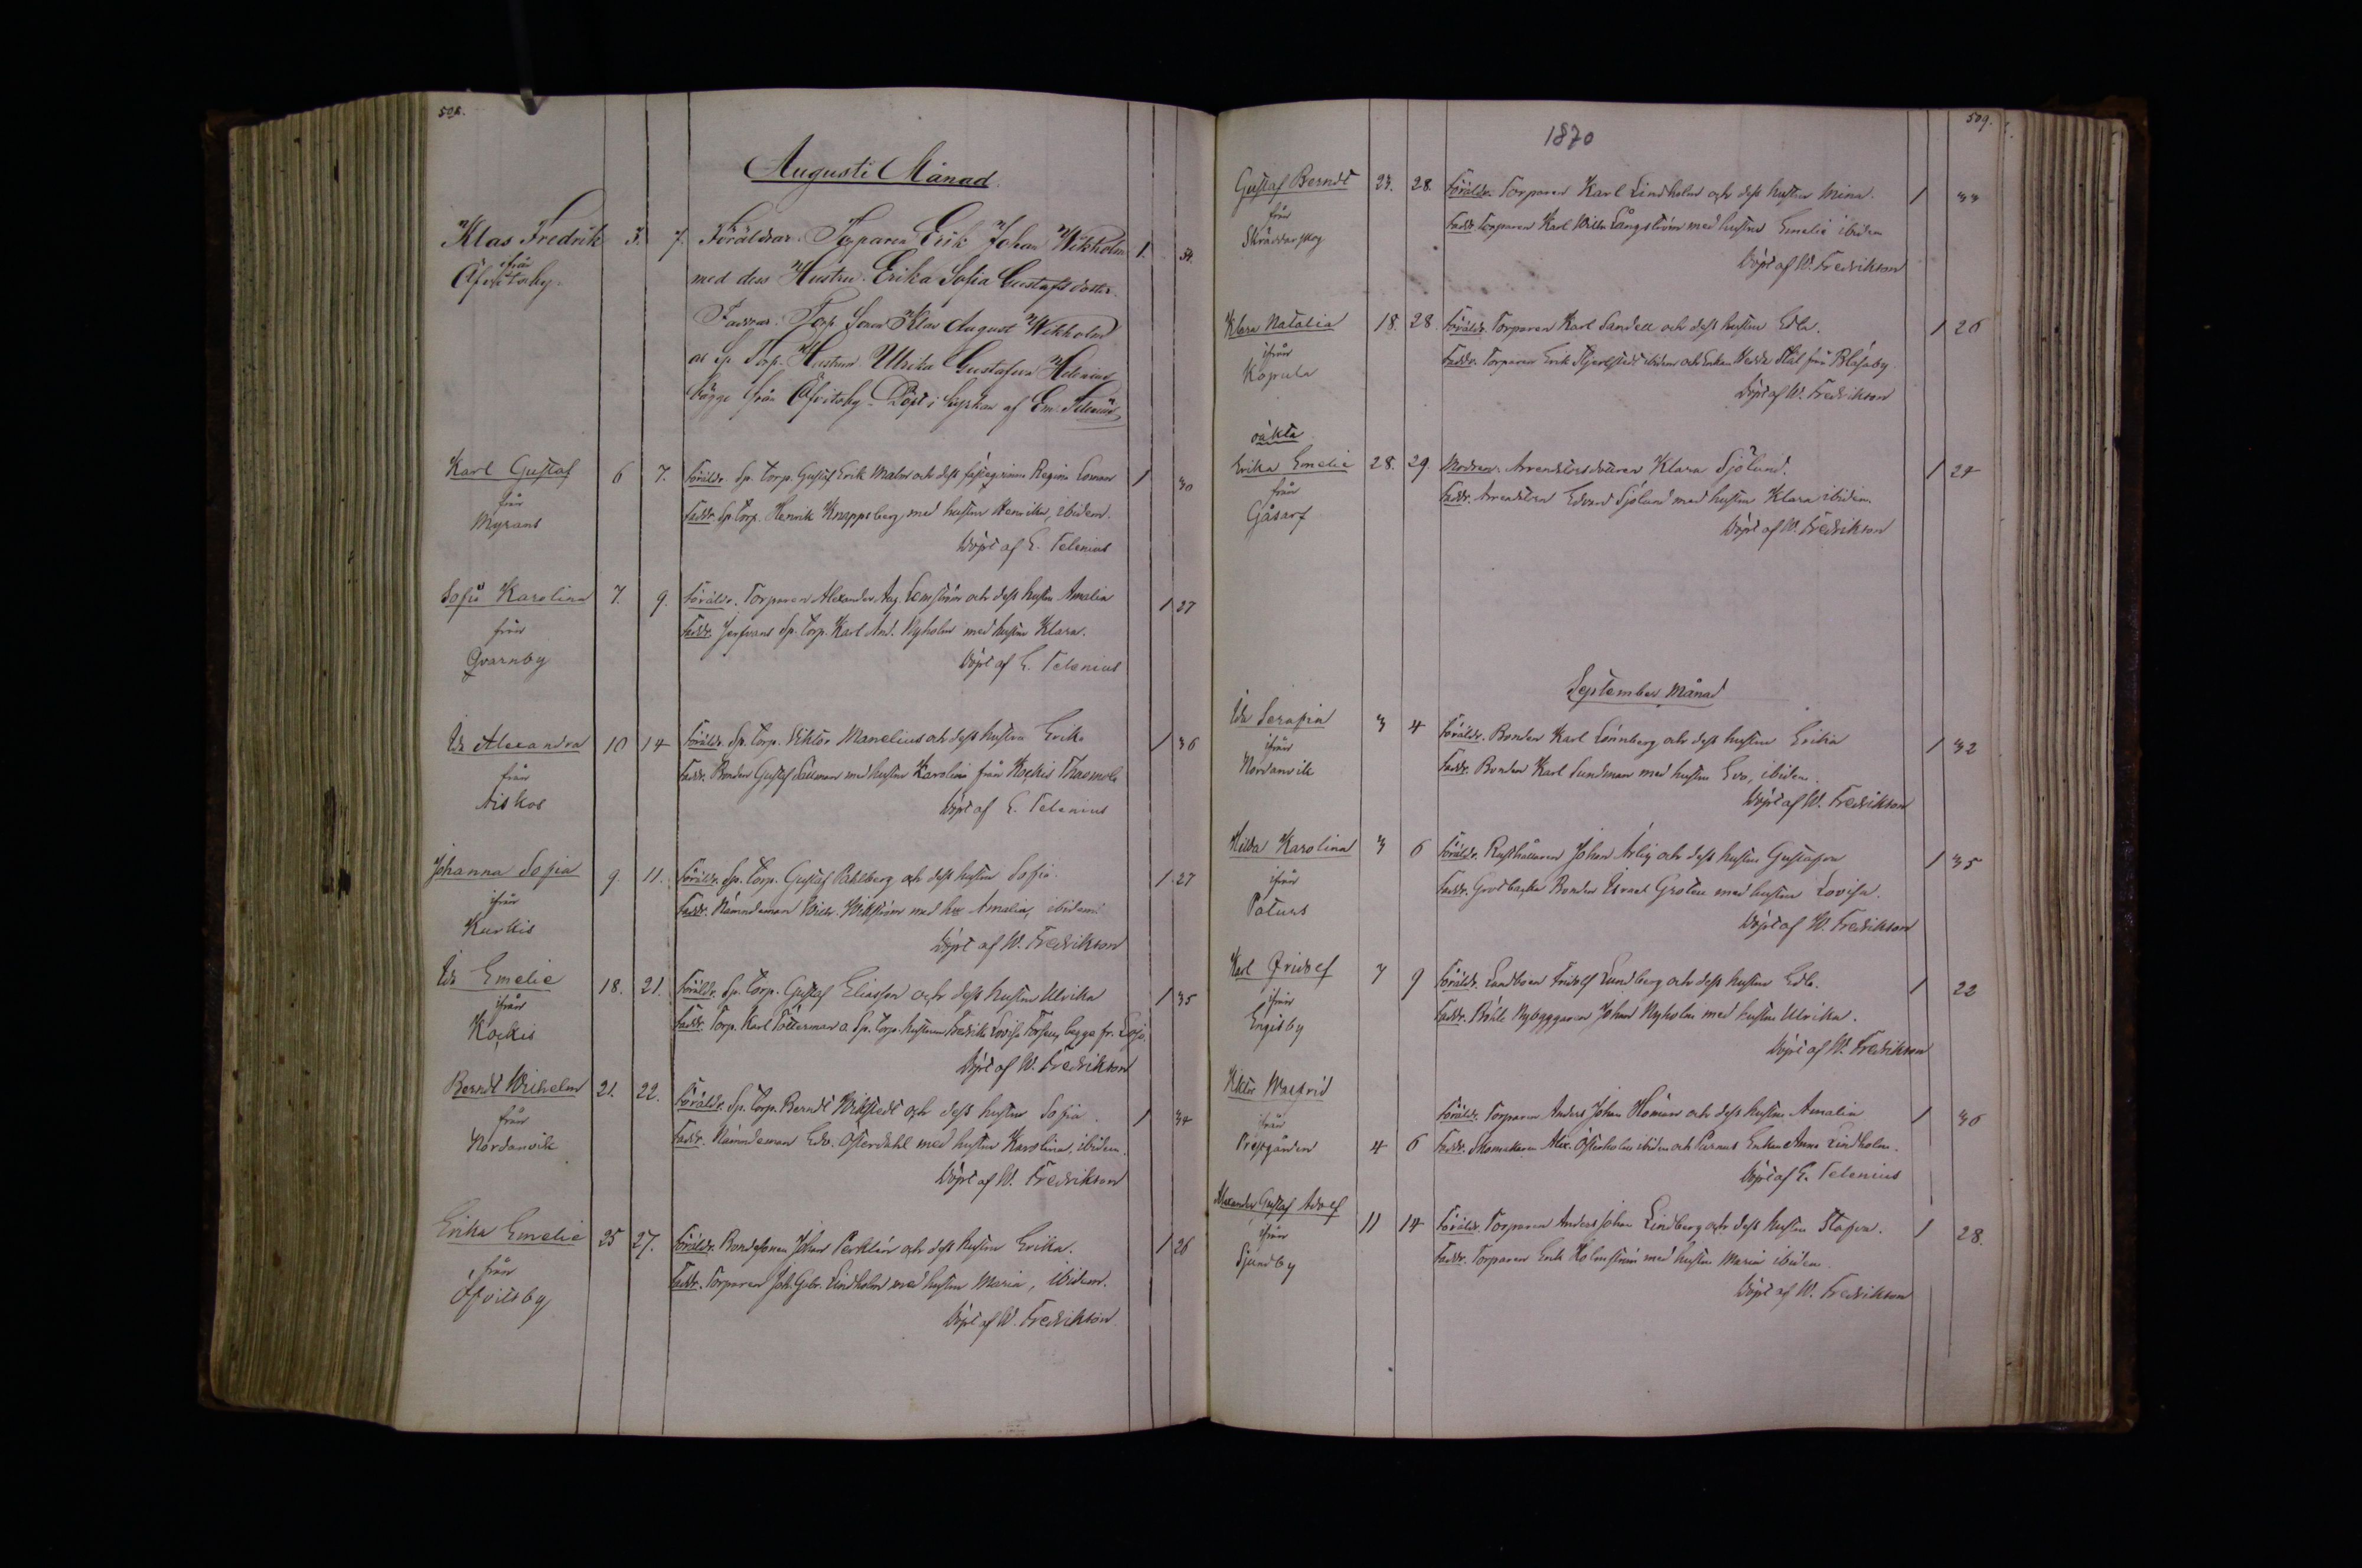 508.
Augusti Månad.
Klas Fredrik 3. 7. Föräldrar: Torparen Erik Johan Wikholm 1.
ifrån
Öfvitsby. med dess Hustru Erika Sofia Gustafsdotter.
Faddrar: Torp. Sonen Klas August Wikholm
Sp. Torp. Hustrun Ulrika Gustafva
bägge från Öfvitsby. Döpt i kyrkan af Em. Telenius
Karl Gustaf 6 7. Föräldr. Sp. Torp. Gustaf Erik Malm och dess Regina Loman 1 30
från
Myrans Faddr. Sp. Torp. Henrik Knappsberg med hustru Henrika, ibidem.
Döpt af E. Telenius
Sofia Karolina 7. 9. Föräldr. Torparen Alexander Aug. Lemström och dess hustru Amalia 1 27
från Faddr. Sp. Torp. Karl And. Nyholm med hustru Klara.
Qvarnby Döpt af E. Telenius
Ida Alexandra 10 14 Föräldr. Sp. Torp. Viktor Manelius och dess hustru Erika 1 36
från Faddr. Bonden Gustaf med hustru Karolina från Kockis
Aiskos Döpt af E. Telenius
Johanna Sofia 9. 11. Föräldr. Sp. Torp. Gustaf Påhlberg och dess hustru Sofia. 1 27
ifrån Faddr. Nämndeman Wilh. Wikström med hu Amalia, ibidem.
Kurkis Döpt af W. Fredrikson
Ida Emelie 18. 21. Föräldr. Sp. Torp. Gustaf Eliasson och dess hustru Ulrika 1 35
ifrån Faddr. Torp. Karl Totterman o. Sp. Torp. hustrun Fredrika Lovisa bägge fr.
Kockis Döpt af W. Fredrikson
Berndt Wilhelm 21. 22. Föräldr. Sp. Torp. Berndt Wikstedt och dess hustru Sofia. 1 34
från Faddr. Nämndeman Edv. Österdahl med hustru Karolina, ibidem.
Nordanvik Döpt af W. Fredrikson
Erika Emelie 25 27. Föräldr. Bondesonen Johan Perklén och dess hustru Erika. 1 26
från Faddr. Torparen Joh. Gabr. Lindholm med hustru Maria, ibidem.
Öfvitsby Döpt af W. Fredrikson
1870
509.
Gustaf Berndt 23. 28. Föräldr. Torparen Karl Lindholm och dess hustru Mina. 1 33
från Faddr. Torparen Karl Wilh. Långström med hustru Emelie ibidem
Skräddarskog Döpt af W. Fredrikson
Klara Natalia 18. 28. Föräldr. Torparen Karl Sandell och dess hustru Edla. 1 26
ifrån Faddr. Torparen Erik Hjertstedt ibidem och Enkan Hedda Stål från Blåsaby
Kopula Döpt af W. Fredrikson
oäkta
Erika Emelie 28. 29. Modren: Arrendatorsdottren Klara Sjölund. 1 24
från Faddr. Arrendatoren Edvard Sjölund med hustru Klara ibidem.
Gåsarf Döpt af W. Fredrikson
September Månad
Ida Serafia 3 4 Föräldr. Bonden Karl Lönnberg och dess hustru Erika 1 32
ifrån Faddr. Bonden Karl Sundman med hustru Eva, ibidem.
Nordanvik Döpt af W. Fredrikson
Hilda Karolina 3 6 Föräldr. Rusthållaren Johan Ärlig och dess hustru Gustafva 1 35
ifrån Faddr. Grodbacka Bonden Israel Groten med hustru Lovisa.
Paturs Döpt af W. Fredrikson
Karl Fridolf 7 9 Föräldr. Landboen Fridolf Lundberg och dess hustru Edla. 1 22
ifrån Faddr. Böhle Nybyggaren Johan Nyholm med hustru Ulrika.
Engisby Döpt af W. Fredrikson
Viktor Walfrid
från Föräldr. Torparen Anders Johan Homén och dess hustru Amalia 1 36
Prestgården 4 6 Faddr. Skomakaren Alex. Österholm ibidem och Enkan Anna Lindholm.
Döpt af E. Telenius
Alexander Gustaf Adolf 11 14 Föräldr. Torparen Anders Johan Lindberg och dess hustru Stafva. 1 28.
ifrån Faddr. Torparen Erik Holmström med hustru Maria ibidem.
Sjundby Döpt af W. Fredrikson